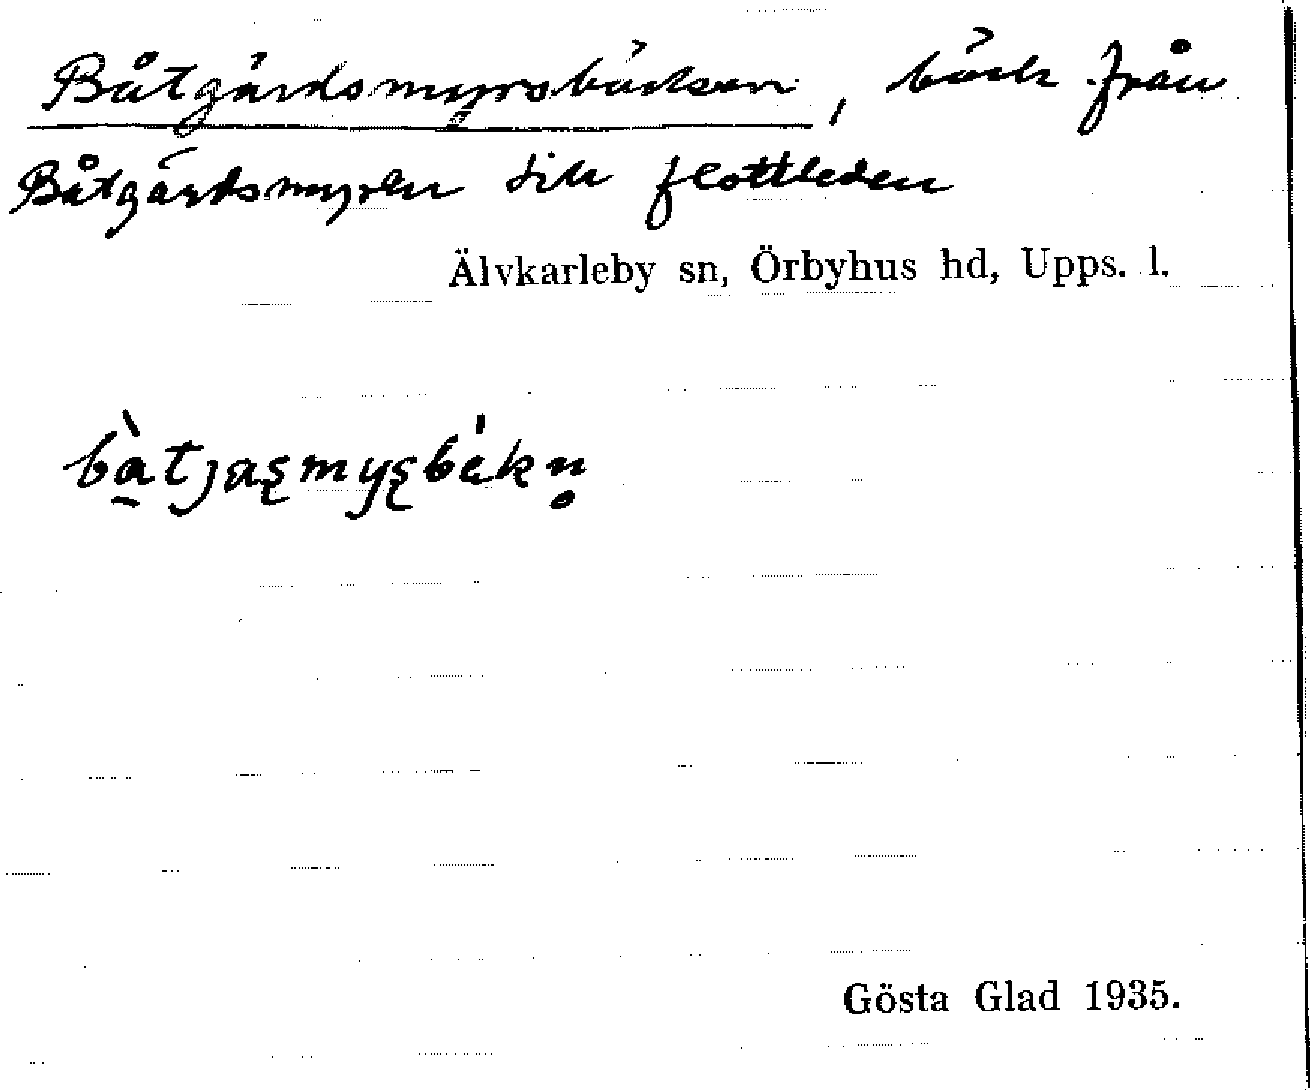 Båtgärdsmyrsbäcken, bäck från
Båtgärdsmyren till flottleden
Älvkarleby sn, Örbyhus hd, Upps. l.
Gösta Glad 1935.